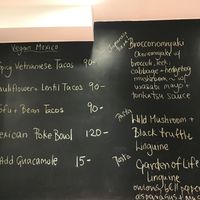 Vegan Mexico
Spicy Vietnamese Tacos 90-
Cauliflower + Lentil Tacos 90-
Tofu + Bean Tacos 90-
Mexican Poke Bowl 120-
Add Guacamole 15-
Brocconomiyaki
broccoli,
cabbage + hedgehog
mushroom w/
wasabi mayo +
tonkatsu sauce
Pasta
Wild Mushroom +
Black truffle
Linguine
Pasta
Garden of Life
Linguine
onions/bell pepper
asparagus